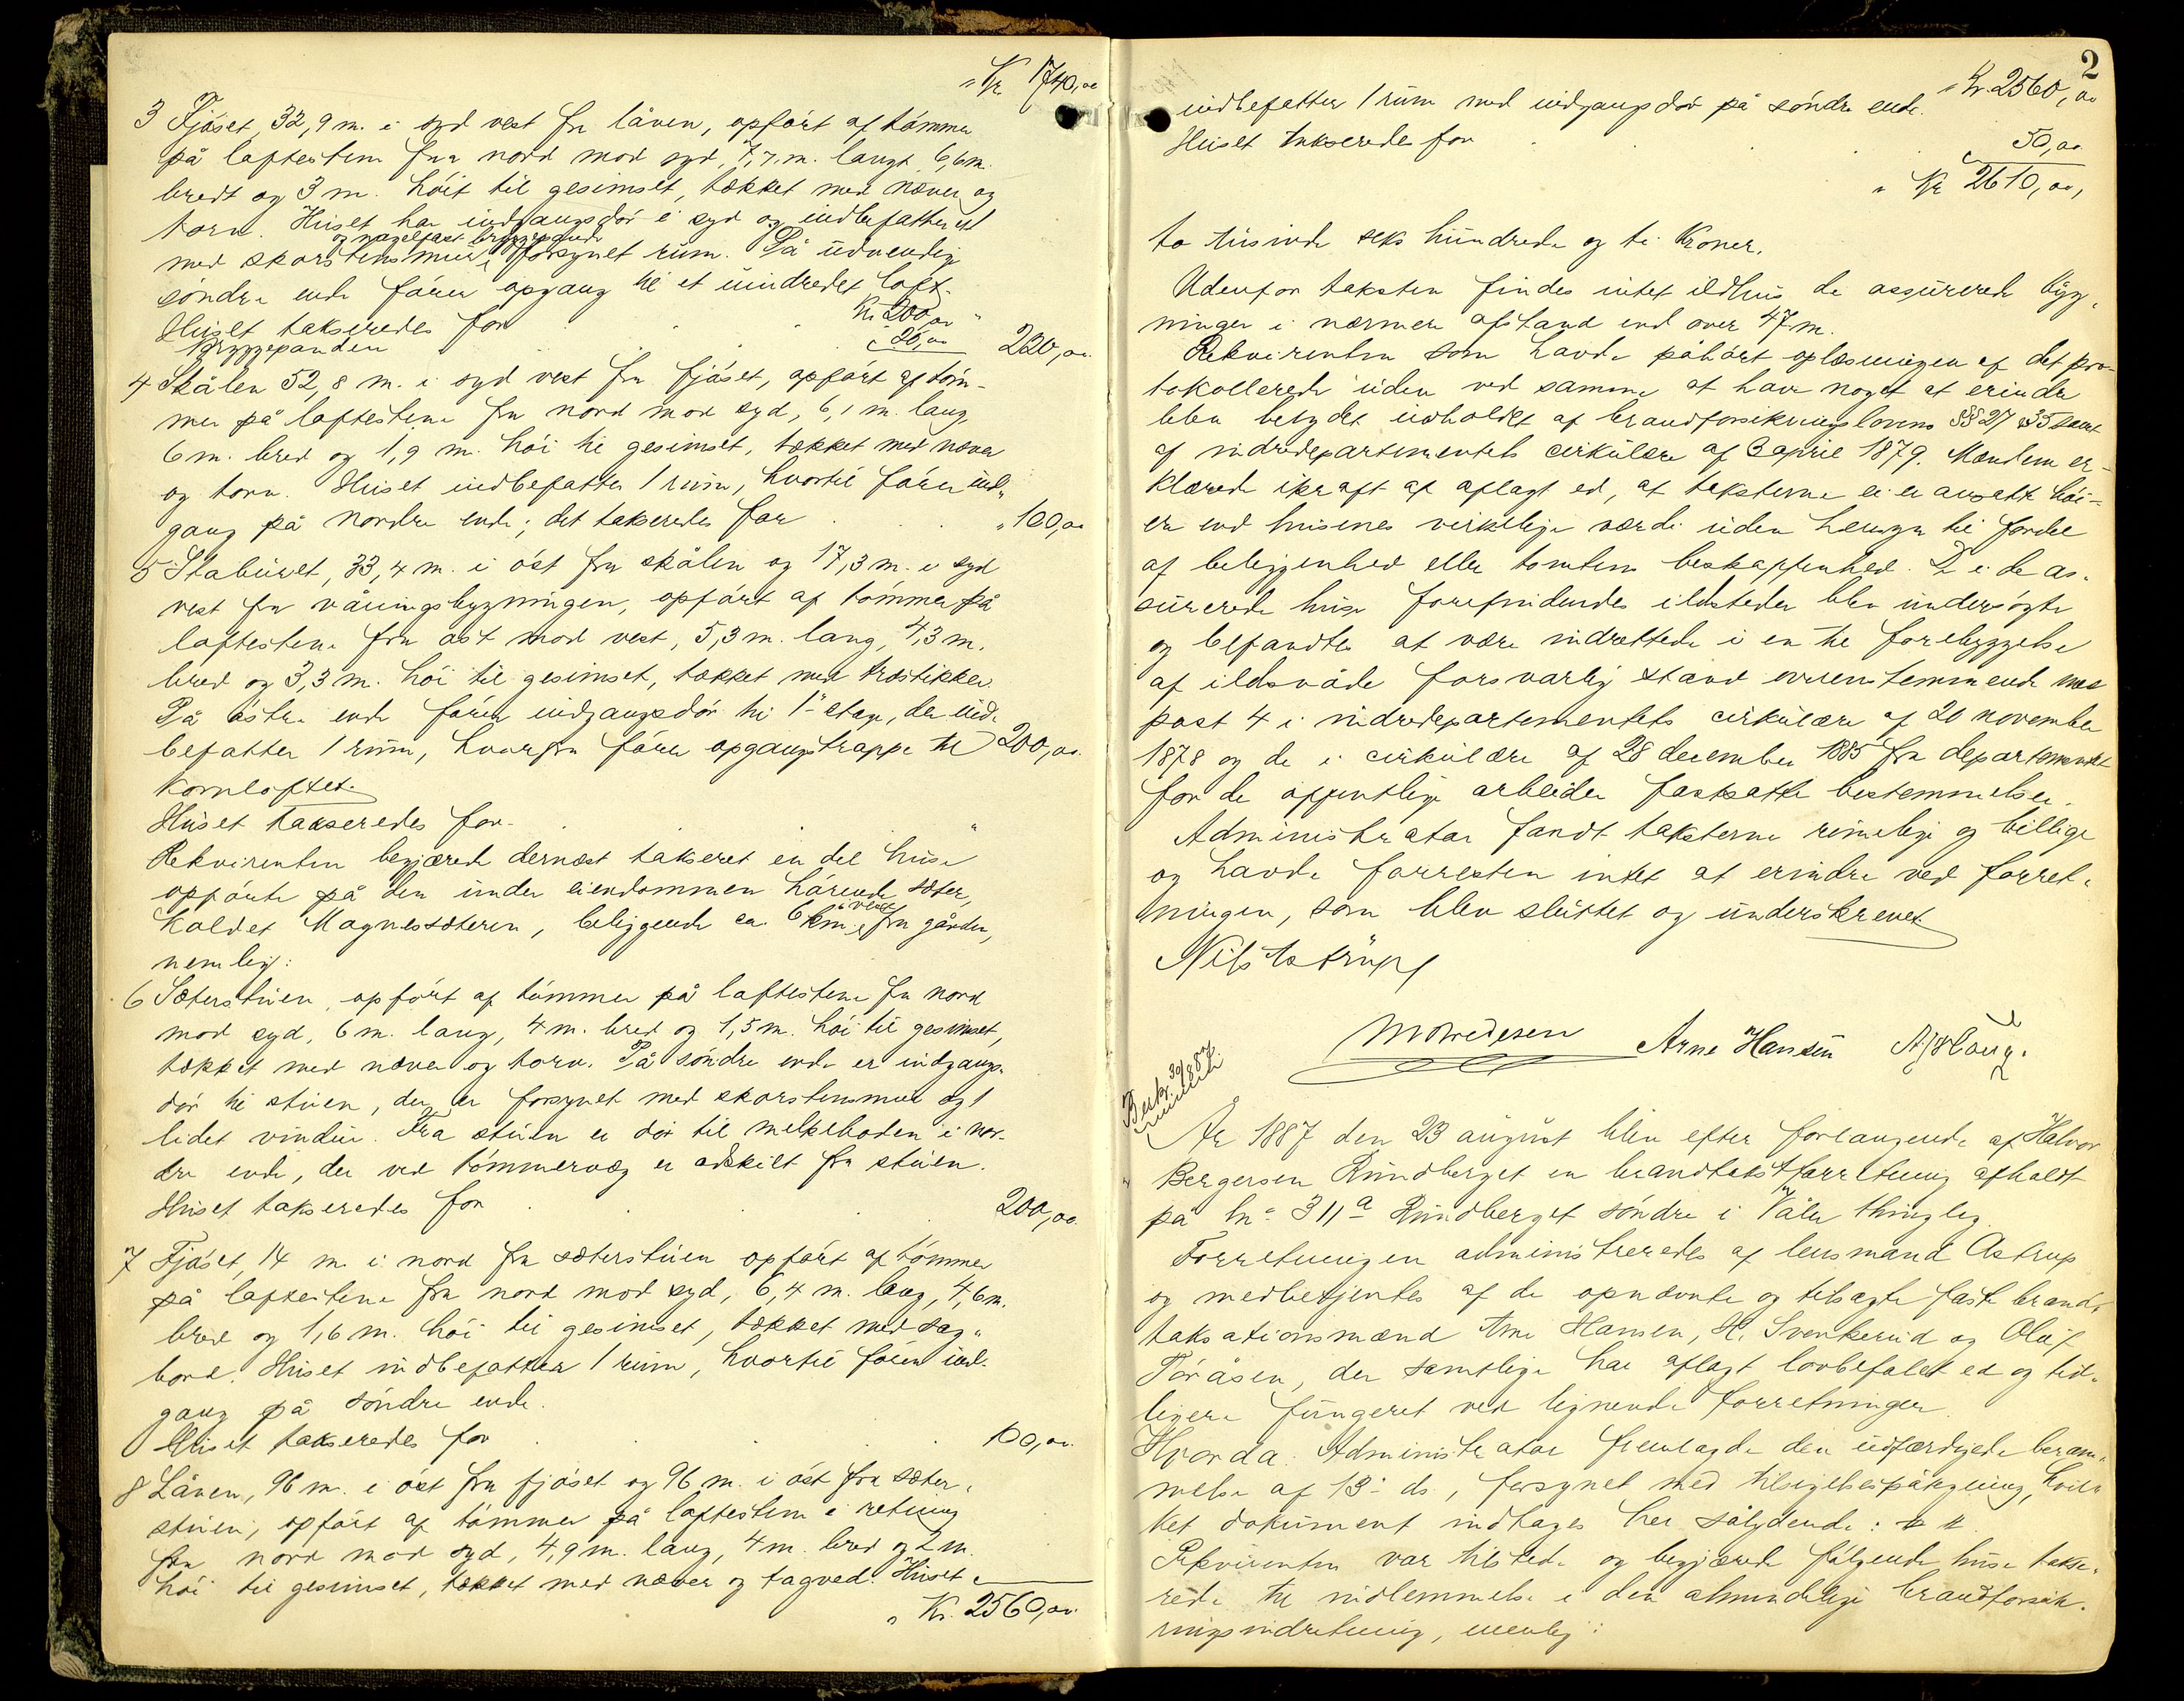 " Kr 1740,00
3 Fjöset, 32,9 m. i syd vest fra låven, opfört af tömmer
på laftestene fra nord mod syd, 7,7 m. langt, 6,6 m.
bredt og 3 m. höit til gesimset, tækket med næver og
torv. Huset har indgangsdör i syd og indbefatter et
og nagelfast bryggepande
med skorstensmur forsynet rum. På udvendig
söndre ende förer opgang til et uindredet loft.
Huset takseredes for Kr 200,00 "
Bryggepanden " 20,00 220,00
4 Skålen 52,8 m. i syd vest fra fjöset, opfört af töm-
mer på laftestene fra nord mod syd, 6,1 m. lang,
6 m. bred og 1,9 m. höi til gesimset, tækket med næver
og torv. Huset indbefatter 1 rum, hvortil förer ind-
gang på nordre ende; det takseredes for " 100,00
5 Staburet, 33,4 m. i öst fra skålen og 17,3 m. i syd
vest fra våningsbygningen, opfört af tömmer på
laftestene fra öst mod vest, 5,3 m. lang, 4,3 m.
bred og 3,3 m. höi til gesimset, tækket med træstikker.
På östre ende förer indgangsdör til 1ste etage, der ind-
befatter 1 rum, hvorfra förer opgangstrappe til 200,00
kornloftet.
Huset takseredes for "
Rekvirenten begjærede dernæst takseret en del huse
opförte på den under eiendommen hörende sæter,
i vest
kaldet Magnessæteren, beliggende ca. 6 km. fra gården,
nemlig:
6 Sæterstuen, opfört af tömmer på laftestene fra nord
mod syd, 6 m. lang, 4 m. bred og 1,5 m. höi til gesimset,
tækket med næver og torv. På söndre ende er indgangs-
dör til stuen, der er forsynet med skorstensmur og 1
lidet vindu. Fra stuen er dör til melkeboden i nor-
dre ende, der ved tömmervæg er adskilt fra stuen.
Huset takseredes for 200,00
7 Fjöset, 14 m. i nord fra sæterstuen opfört af tömmer
på laftestene fra nord mod syd, 6,4 m. lang, 4,6 m.
bred og 1,6 m. höi til gesimset, tækket med sag-
bord. Huset indbefatter 1 rum, hvortil förer ind-
gang på söndre ende.
Huset takseredes for 100,00
8 Låven, 96 m. i öst fra fjöset og 96 m. i öst fra sæter-
stuen, opfört af tömmer på laftestene i retning
fra nord mod syd, 4,9 m. lang, 4 m. bred og 2 m.
höi til gesimset, tækket med næver og tagved. Huset
" Kr. 2560,00
2
" Kr. 2560,00
indbefatter 1 rum med indgangsdör på söndre ende.
Huset takseredes for 50,00
" Kr 2610,00,
to tusinde seks hundrede og ti Kroner.
Udenfor taksten findes intet ildhus de assurerede byg-
ninger i nærmere afstand end over 47 m.
Rekvirenten som havde påhört oplæsningen af det pro-
tokollerede uden ved samme at have noget at erindre
blev betydet indholdet af brandforsikringslovens §§ 27 & 35 samt
af indredepartementets cirkulære af 3 april 1879. Mændene er-
klærede ikraft af aflagt ed, at taksterne ei er ansatte höi-
ere end husenes virkelige værdi uden hensyn til fordel
af beliggenhed eller tomtens beskaffenhed. De i de as-
surerede huse forefindendes ildsteder blev undersögte
og befandtes at være indrettede i en til forebyggelse
af ildsvåde forsvarlig stand overensstemmende med
post 4 i indredepartementets cirkulære af 20 november
1878 og de i cirkulære af 28 december 1885 fra departementet
for de offentlige arbeider fastsatte bestemmelser.
Administrator fandt taksterne rimelige og billige
og havde forresten intet at erindre ved forret-
ningen, som blev sluttet og underskrevet
Nils Astrup
M Arnesen Arne Hansen A. Haug.
30/8 87
År 1887 den 23 august blev efter forlangende af Halvor
Bergersen Rundberget en brandtakstforretning afholdt
på Ln: 311a Rundberget söndre i Våler thinglag.
Forretningen administreredes af lensmand Astrup
og medbetjentes af de opnævnte og tilsagte faste brand-
taksationsmænd Arne Hansen, H. Svenkerud og Oluf
Töråsen, der samtlige har aflagt lovbefalet ed og tid-
ligere fungeret ved lignende forretninger.
Hvorda: Administrator fremlagde den udfærdigede beram-
melse af 13: ds., forsynet med tilsigelsespåtegning, hvil-
ket dokument indtages her sålydende: #
Rekvirenten var tilstede og begjærede fölgende huse takse-
rede til indlemmelse i den almindelige brandforsik-
ringsindretning, nemlig: